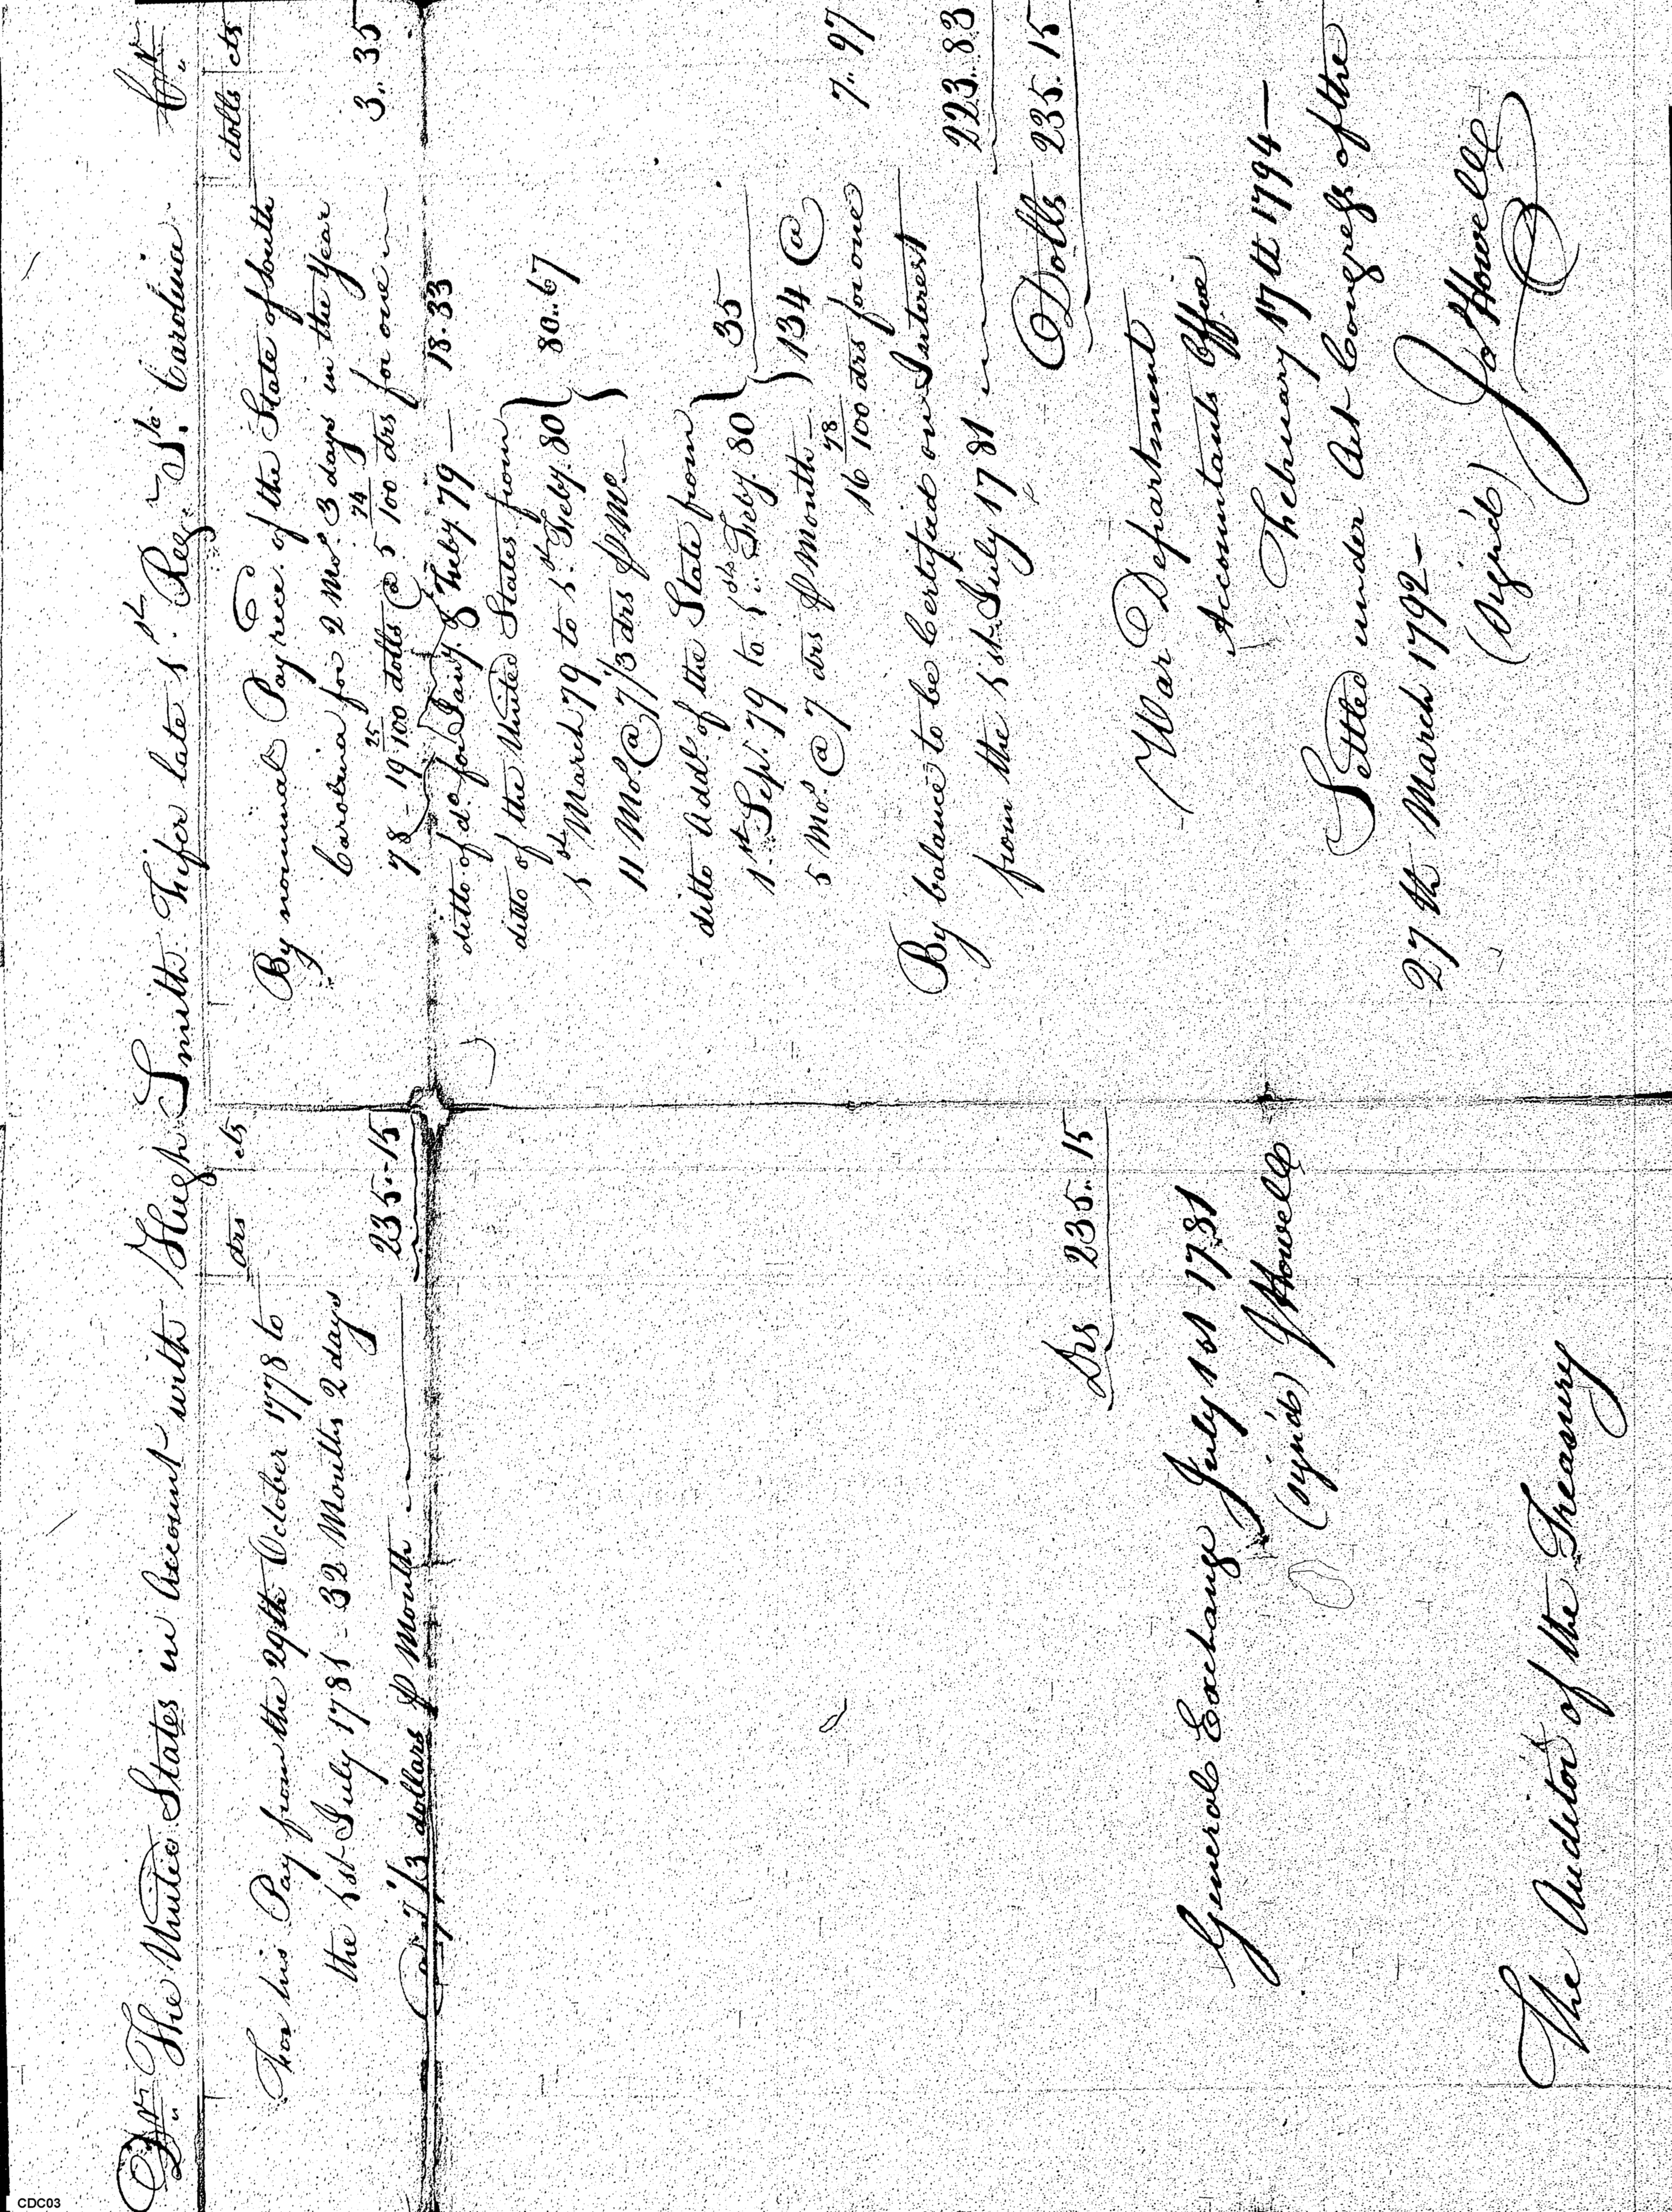 Dr. The United States in Account with Hugh Smith Fifer late 1st Reg. So. Carolina Cr.
drs cts
For his Pay from the 29th October 1778 to
the 1st July 1781 - 32 Months 2 days
@ 7 1/3 dollars P Month 235..15
Drs 235..15
General Exchange July 1st 1781
(sign'd) J Howell
The Auditor of the Treasury
dolls cts
By nominal Pay rece.d of the State of South
Carolina for 2 Mos. 3 days in the Year
78 - 19 25/100 dolls @ 5 74/100 drs for one 3.. 35
ditto of do. for Jany & Feby 79 — 18.33
ditto of the United States from
1st March 79 to 1st Feby. 80 } 80..67
11 Mos. @ 7 1/3 drs P Mo.
ditto Addl. of the State from
1st Sepr. 79 to 1st Feby. 80 } 35
5 Mos. @ 7 drs P Month — ) 134 @
16 78/100 drs for one 7.. 97
By balance to be Certified on Interest
from the 1st July 1781 — 223..83
Dolls 235.15
War Department
Accountants Office
February 17th 1794 —
Settled under Act Congress of the
27th March 1792 —
(Sign'd) Jos Howell
CDC03